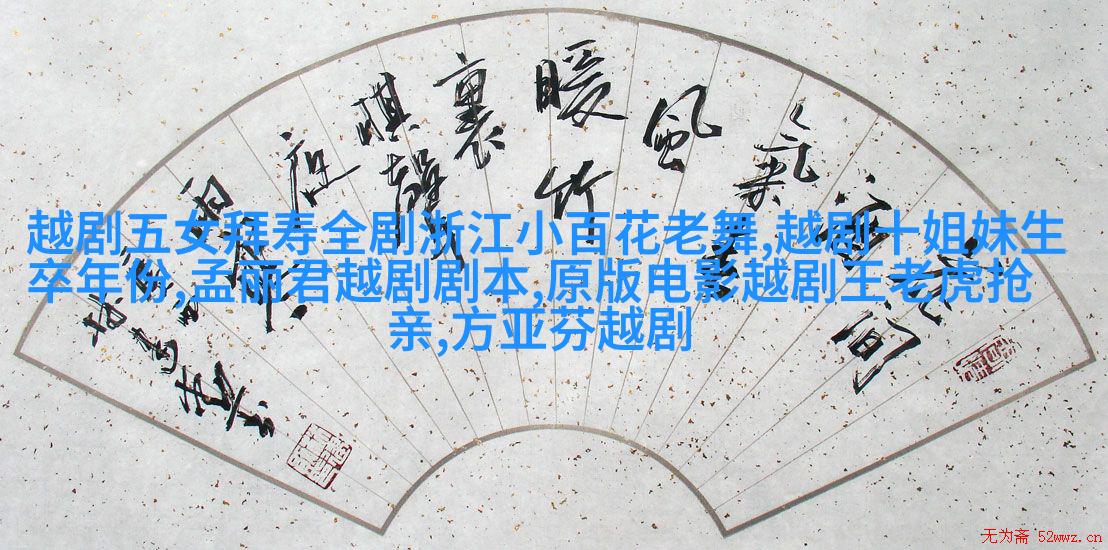 越剧五女拜寿全剧浙江小百花老舞,越剧十姐妹生
卒年份,孟丽君越剧剧本,原版电影越剧王老虎抢
亲,方亚芬越剧
花間
氣
風
暖竹
裏
棋聲
夜
雨
无为斋 52wwz.cn